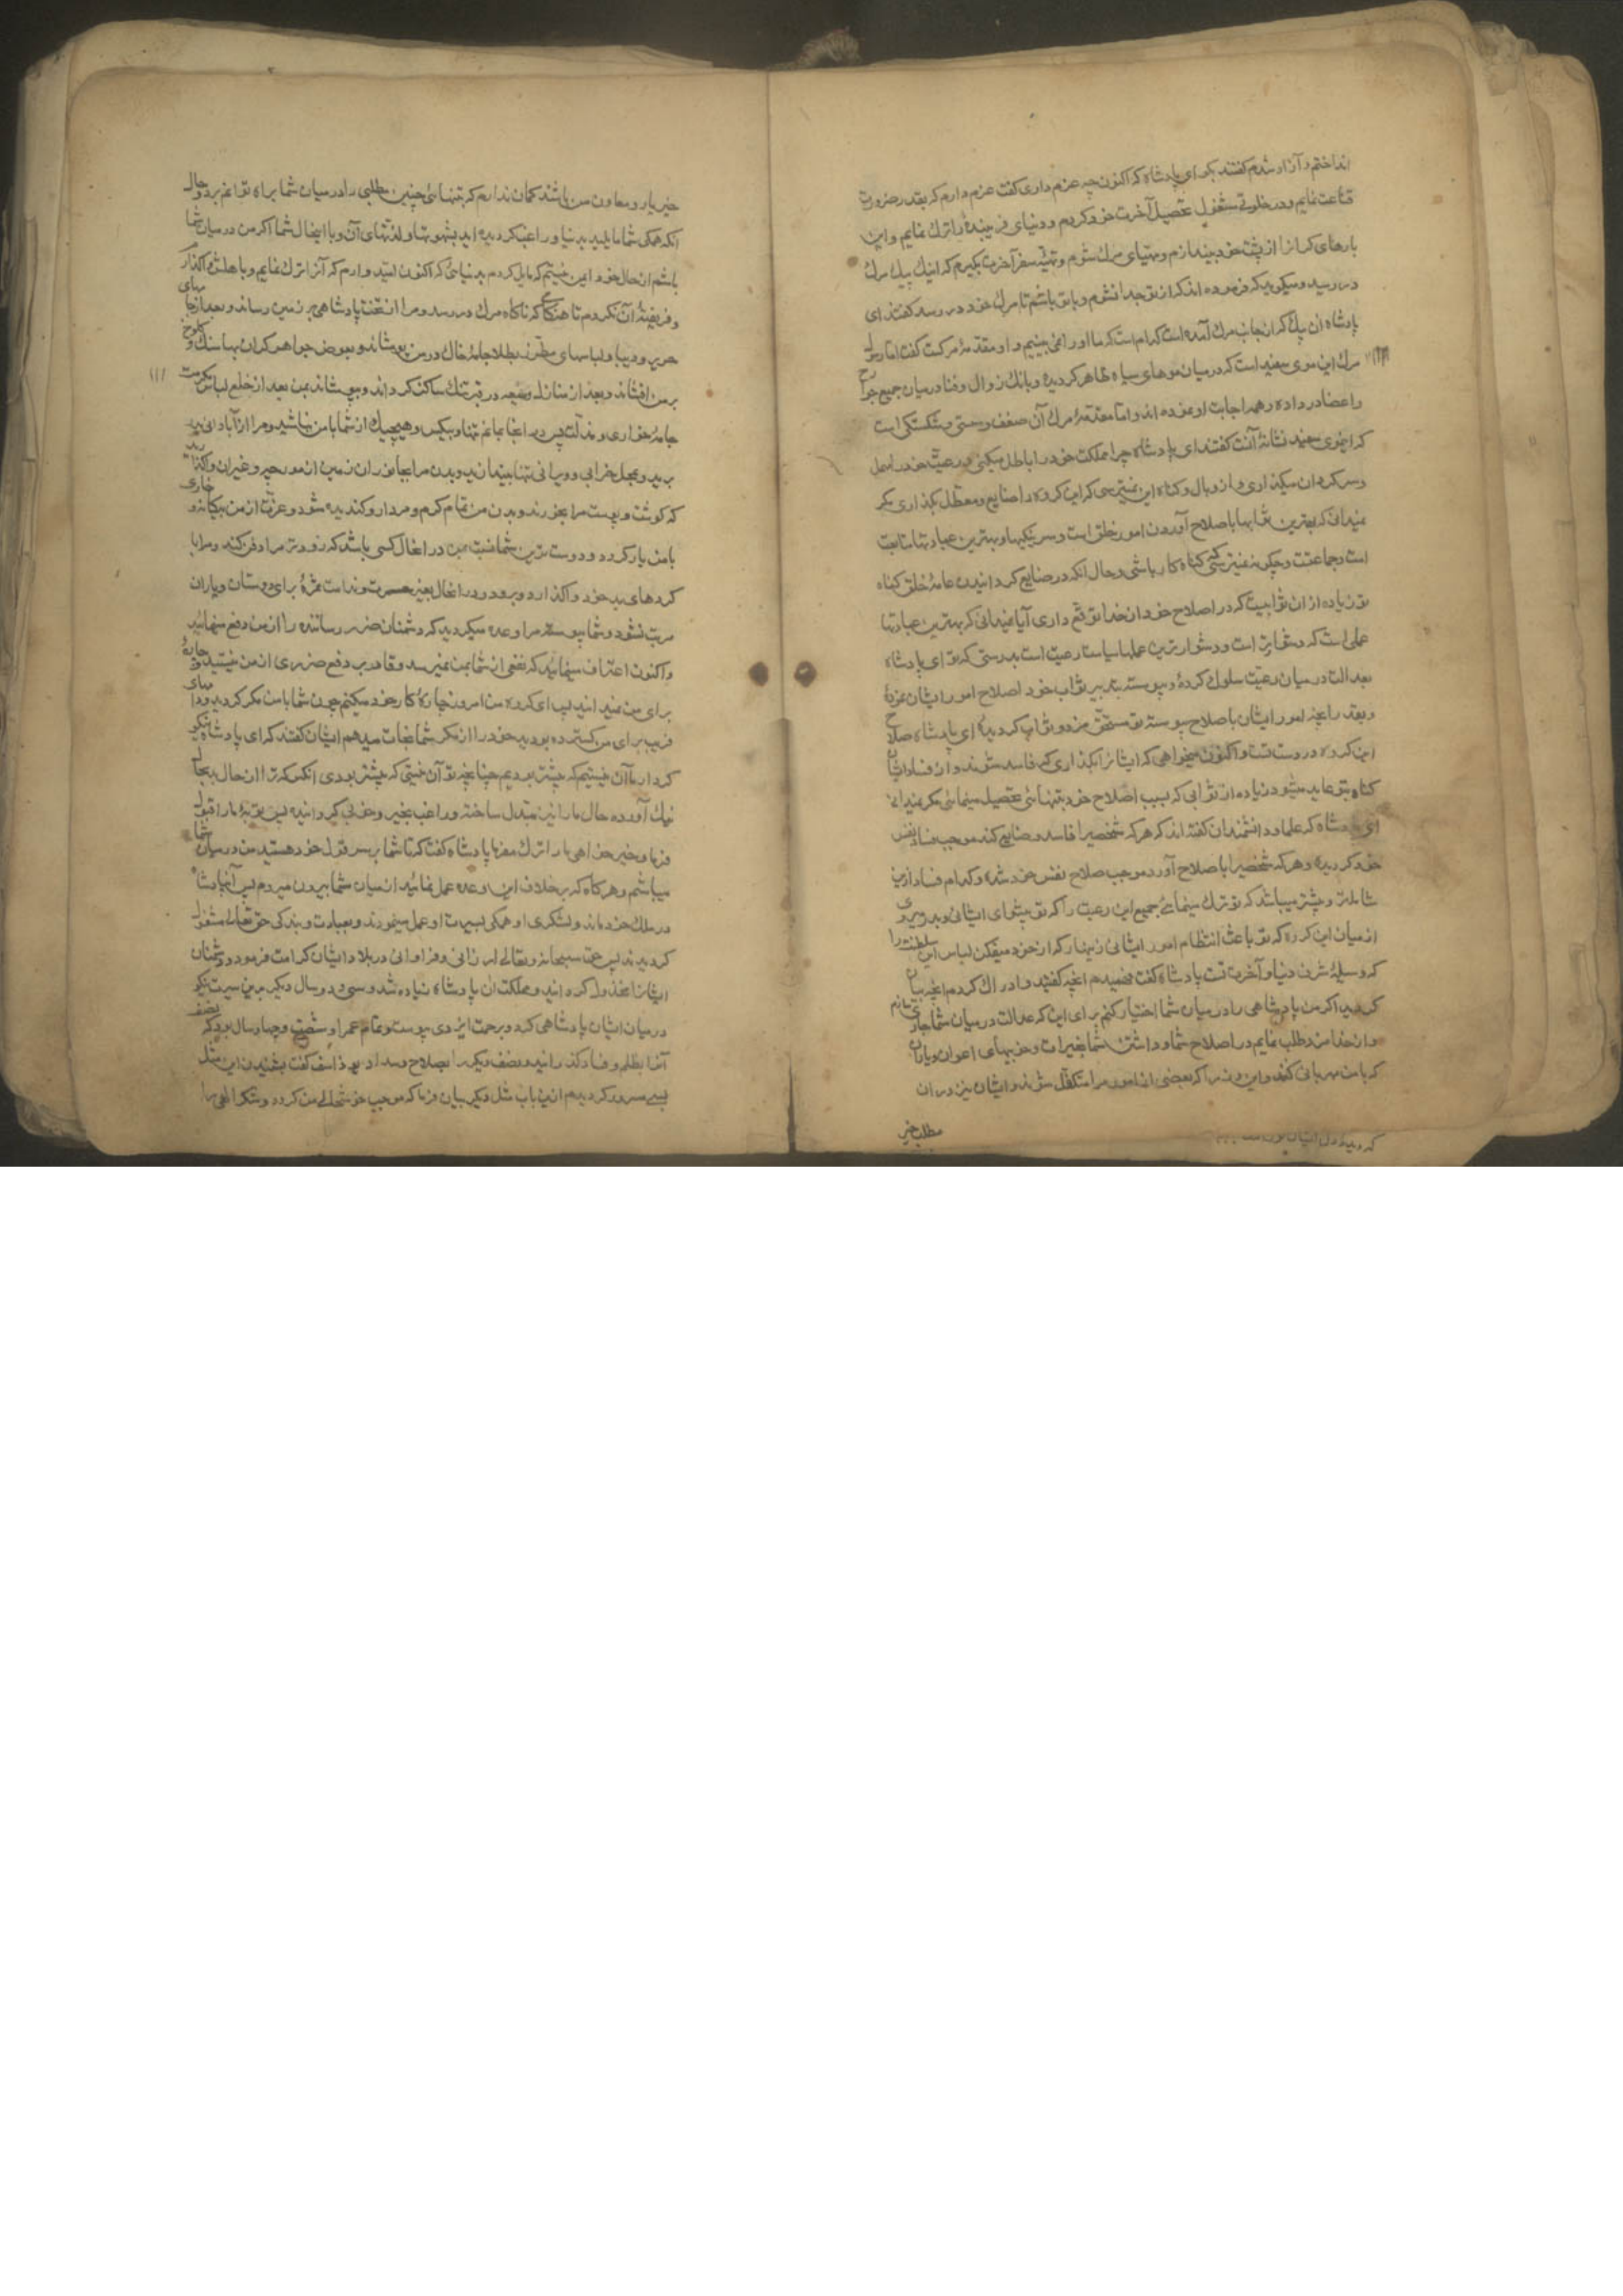 انداختم و آزاد شدم گفتند بگو ای پادشاه که اکنون چه عزم داری گفت عزم دارم که بقدر ضرورت
قناعت نمایم و در خلوتی مشغول تحصیل آخرت خود کردم و دنیای فریبنده را ترک نمایم و این
بارهای کرانرا از پشت خود بیندازم و مهیای مرک شوم و تهیّه سفر آخرت بکیرم که اینک پیک مرک
در رسید و میکوید که فرموده اند که از تو جدا نشوم و با تو باشم تا مرک خود در رسد گفتند ای
پادشاه ان پیک که از جانب مرک آمده است کدام است که ما او را نمی بینیم و او مقدمهٔ مرکست گفت اما رسول
مرک این موی سفید است که در میان موهای سیاه ظاهر کردیده و بانک زوال و فنا در میان جمیع جوارح
و اعضا در داده و همه اجابت او نموده اند و اما مقدمهٔ مرک آن ضعف و سستی و شکستکی است
که این موی سفید نشانهٔ آنست گفتند ای پادشاه چرا مملکت خود را باطل میکنی و رعیت خود را مهمل
و سرکردان میکذاری و از وبال و کناه این نمیترسی که این کروه را ضایع و معطل بکذاری مکر
نمیدانی که بهترین ثوابها باصلاح آوردن امور خلق است و سر نیکیها و بهترین عبادتها متابعت
امت و جماعتست و چکونه نمیترسی که کناه کار باشی و حال آنکه در ضایع کردانیدن عامهٔ خلق کناه
تو زیاده از ان ثوابیست که در اصلاح خود از خدا توقع داری آیا نمیدانی که بهترین عبادتها
عملی است که دشوارتر است و دشوارترین عملها سیاست رعیت است بدرستی که تو ای پادشاه
بعدالت در میان رعیت سلوک کردهٔ و پیوسته بتدبیر ثواب خود اصلاح امور ایشان نمودهٔ
و بقدر انچه امور ایشان باصلاح پیوسته تو مستحق مزد و ثواب کردیدهٔ ای پادشاه صلاح
این کروه در دست تست و اکنون میخواهی که ایشانرا بکذاری که فاسد شوند و از فساد ایشان
کناه بتو عاید میشود زیاده از ثوابی که بسبب اصلاح خود بتنهائی تحصیل مینمائی مکر نمیدانی
ای پادشاه که علما و دانشمندان گفته اند که هر که شخصیرا فاسد و ضایع کند موجب فساد نفس
خود کردیده و هر که شخصیرا باصلاح آورد موجب صلاح نفس خود شده و کدام فساد ازین
شاملتر و بیشتر میباشد که تو ترک مینمائی جمیع این رعیت را که تو پیشوای ایشانی و بدر میروی
از میان این کروه که تو باعث انتظام امور ایشانی زینهار که از خود میفکن لباس این سلطنت را
که وسیلهٔ شرف دنیا و آخرت تست پادشاه گفت فهمیدم انچه گفتید و ادراک کردم انچه بیان
کردید اکر من پادشاهی را در میان شما اختیار کنم برای این که عدالت در میان شما جاری سازم
و از خدا مزد طلب نمایم در اصلاح شما و داشتن شما بخیرات و خوبیهای اعوان و یاران
که با من مهربانی کنند و این وزرا که بعضی از امور مرا متکفل شوند و ایشان نیز در ان
مطلب خیر
خیر یار و معاون من باشند کمان ندارم که بتنهائی چنین مطلبی را در میان شما براه توانم برد و حال
آنکه همکی شما مایلید بدنیا و راغب کردیده اید بشهوتها و لذتهای آن و با اینحال شما اکر من در میان شما
باشم از حال خود ایمن نیستم که مایل کردم بدنیائی که اکنون امید دارم که آنرا ترک نمایم و باهلش واکذارم
و فریفتهٔ آن نکردم تا هنکامی که ناکاه مرک در رسد و مرا از تخت پادشاهی بر زمین رساند و بعد از جامهای
حریر و دیبا و لباسهای مطرّز بطلا جامهٔ خاک در من پوشاند و بعوض جواهر کران بها سنک و کلوخ
بر من افشاند و بعد از منازل وسیعه در قبر تنک ساکن کرداند و بپوشاند بمن بعد از خلع لباس کرامت
جامهٔ خواری و مذلت پس در انجا بمانم تنها و بیکس و هیچیک از شما با من نباشید و مرا از آبادانی بدر
برید و بمحل خرابی و ویرانی تنها بیندازید و بدن مرا بجانوران زمین از مورچه و غیر ان واکذارید
که کوشت و پوست مرا بخورند و بدن من تمام کرم و مردار و کندیده شود و عزت از من بیکانه و خواری
با من یار کردد و دوست ترین شما نسبت بمن در انحال کسی باشد که زودتر مرا دفن کند و مرا با
کردهای بد خود واکذارد و برود و در انحال بغیر حسرت و ندامت ثمرهٔ برای دوستان و یاران
مرتب نشود و شما پیوسته مرا وعده میکردید که دشمنان ضرر رساننده را از من دفع مینمائید
و اکنون اعتراف مینمائید که نفعی از شما بمن نمیرسد و قادر بر دفع ضرری از من نیستید و چارهٔ
برای من نمیدانید پس ای کروه من امروز چارهٔ کار خود میکنم چون شما با من مکر کردید و دامهای
فریب برای من کسترده بودید خود را از مکر شما نجات میدهم ایشان گفتند که ای پادشاه نیکو
کردار ما آن نیستیم که پیشتر بودیم چنانچه تو آن نیستی که پیشتر بودی انکس که ترا از ان حال بد بحال
نیک آورده حال ما را نیز مبدل ساخته و راغب بخیر و خوبی کردانیده پس توبهٔ ما را قبول
فرما و خیر خواهی ما را ترک مفرما پادشاه گفت که تا شما بر سر قول خود هستید من در میان شما
میباشم و هر کاه که بر خلاف این وعده عمل نمائید از میان شما بیرون میروم پس آنپادشاه
در ملک خود ماند و لشکری او همکی بسیرت او عمل مینمودند و بعبادت و بندکی حق تعالی مشغول
کردیدند پس حق سبحانه و تعالی ارزانی و فراوانی در بلاد ایشان کرامت فرمود و دشمنان
ایشانرا مخذول کردانید و مملکت ان پادشاه زیاده شد و سی و دو سال دیکر بدین سیرت نیکو
در میان ایشان پادشاهی کرد و برحمت ایزدی پیوست و تمام عمر او شصت و چهار سال بود که نصف
آنرا بظلم و فساد کذرانید و نصف دیکر را بصلاح و سداد یوذاسف گفت بشنیدن این مثل
بسی مسرور کردیدم ازین باب مثل دیکر بیان فرما که موجب خوشحالی من کردد و شکر الهی را